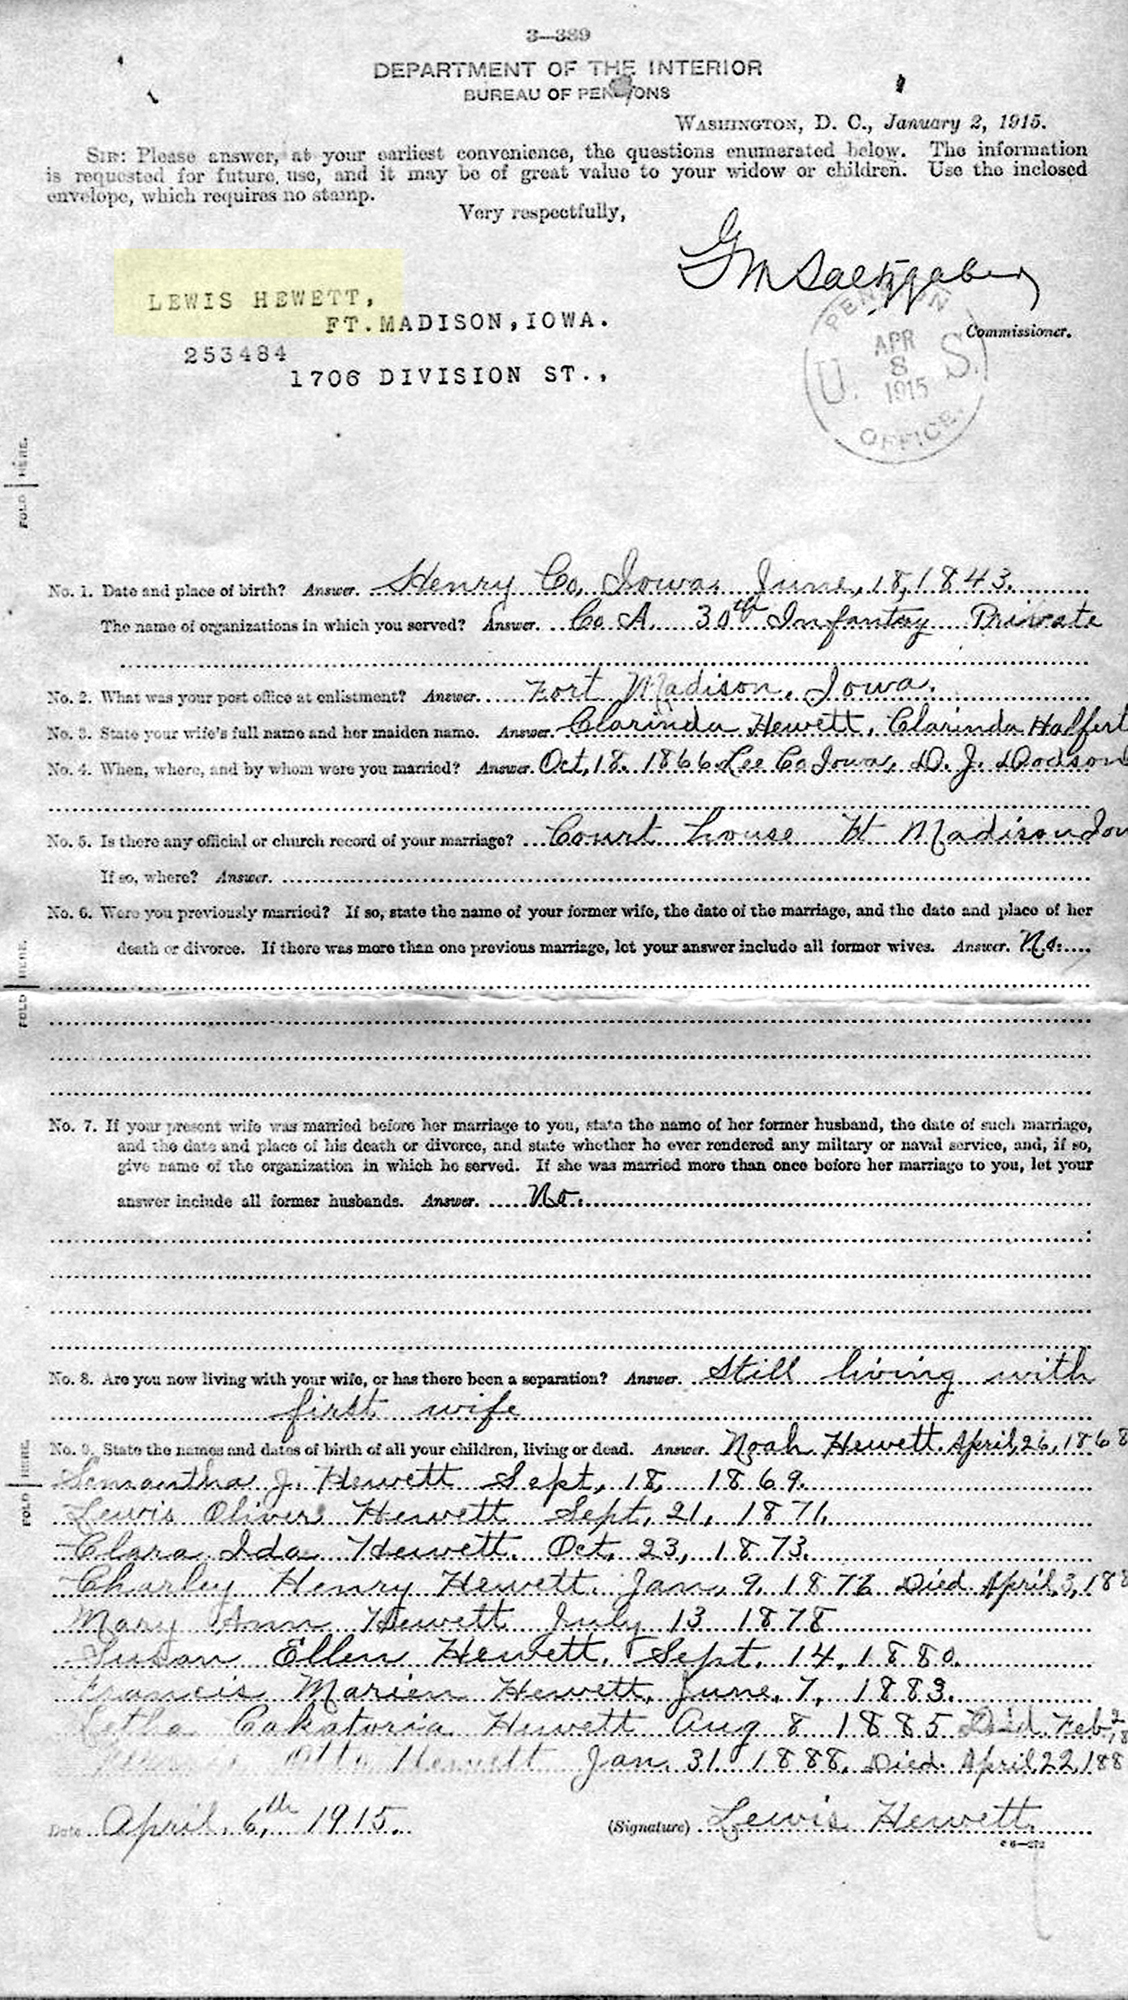 3—389
DEPARTMENT OF THE INTERIOR
BUREAU OF PENSIONS
WASHINGTON, D. C., January 2, 1915.
SIR: Please answer, at your earliest convenience, the questions enumerated below. The information
is requested for future use, and it may be of great value to your widow or children. Use the inclosed
envelope, which requires no stamp.
Very respectfully,
G M Saltzgaber
Commissioner.
LEWIS HEWETT,
FT. MADISON, IOWA.
253484
1706 DIVISION ST.,
PENSION
APR
U. 8 S.
1915
OFFICE.
FOLD HERE.
No. 1. Date and place of birth? Answer. Henry Co, Iowa, June, 18, 1843.
The name of organizations in which you served? Answer. Co A. 30th Infantry Private
No. 2. What was your post office at enlistment? Answer. Fort Madison, Iowa.
No. 3. State your wife's full name and her maiden name. Answer. Clarinda Hewett, Clarinda
No. 4. When, where, and by whom were you married? Answer. Oct, 18. 1866 Lee Co Iowa, D. J. Dodson
No. 5. Is there any official or church record of your marriage? Court house Ft Madison Iow
If so, where? Answer.
No. 6. Were you previously married? If so, state the name of your former wife, the date of the marriage, and the date and place of her
death or divorce. If there was more than one previous marriage, let your answer include all former wives. Answer. No.
FOLD HERE.
No. 7. If your present wife was married before her marriage to you, state the name of her former husband, the date of such marriage,
and the date and place of his death or divorce, and state whether he ever rendered any military or naval service, and, if so,
give name of the organization in which he served. If she was married more than once before her marriage to you, let your
answer include all former husbands. Answer. No.
No. 8. Are you now living with your wife, or has there been a separation? Answer. Still living with
first wife
No. 9. State the names and dates of birth of all your children, living or dead. Answer. Noah Hewett. April, 26, 1868
Semantha J. Hewett Sept, 18, 1869.
Lewis Oliver Hewett Sept, 21, 1871.
Clara Ida Hewett. Oct, 23, 1873.
Charley Henry Hewett. Jan, 9, 1876 Died April, 3, 188
Mary Ann Hewett July 13 1878
Susan Ellen Hewett. Sept. 14, 1880.
Francis Marien Hewett. June. 7, 1883.
Letha Hewett Aug 8 1885 Died. Feb 2
Otto Hewett Jan. 31. 1888. Died. April 22, 188
FOLD HERE.
Date April. 6,th 1915.
(Signature) Lewis Hewett.